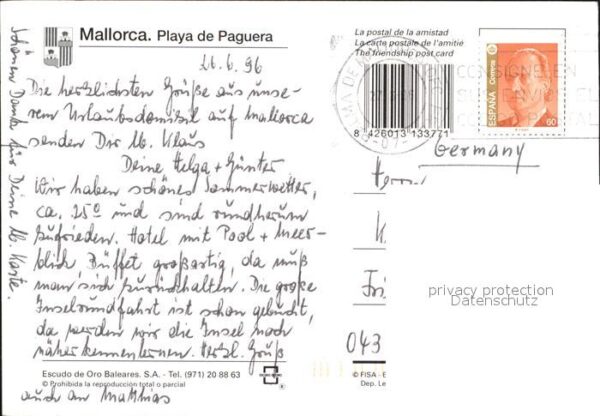 Mallorca. Playa de Paguera
26.6.96
Die herzlichsten Grüße aus unse-
rem Urlaubsdomizil auf Mallorca
senden Dir lb. Klaus
Deine Helga + Günter
Wir haben schönes Sommerwetter,
ca. 25° und sind rundherum
zufrieden. Hotel mit Pool + Meer-
blick Büffet großartig, da muß
man sich zurückhalten. Die große
Inselrundfahrt ist schon gebucht,
da werden wir die Insel noch
näher kennenlernen. Herzl. Gruß
auch an Matthias
Schönen Danke für Deine lb. Karte.
Escudo de Oro Baleares. S.A. - Tel. (971) 20 88 63
© Prohibida la reproducción total o parcial
La postal de la amistad
La carte postale de l'amitié
The friendship post card
8 426013 133771
ESPAÑA
Correos
60
CONSIGNE EN
POSTAL
-07-
Germany
Herrn
K
Fri
043
privacy protection
Datenschutz
© FISA - E
Dep. Le